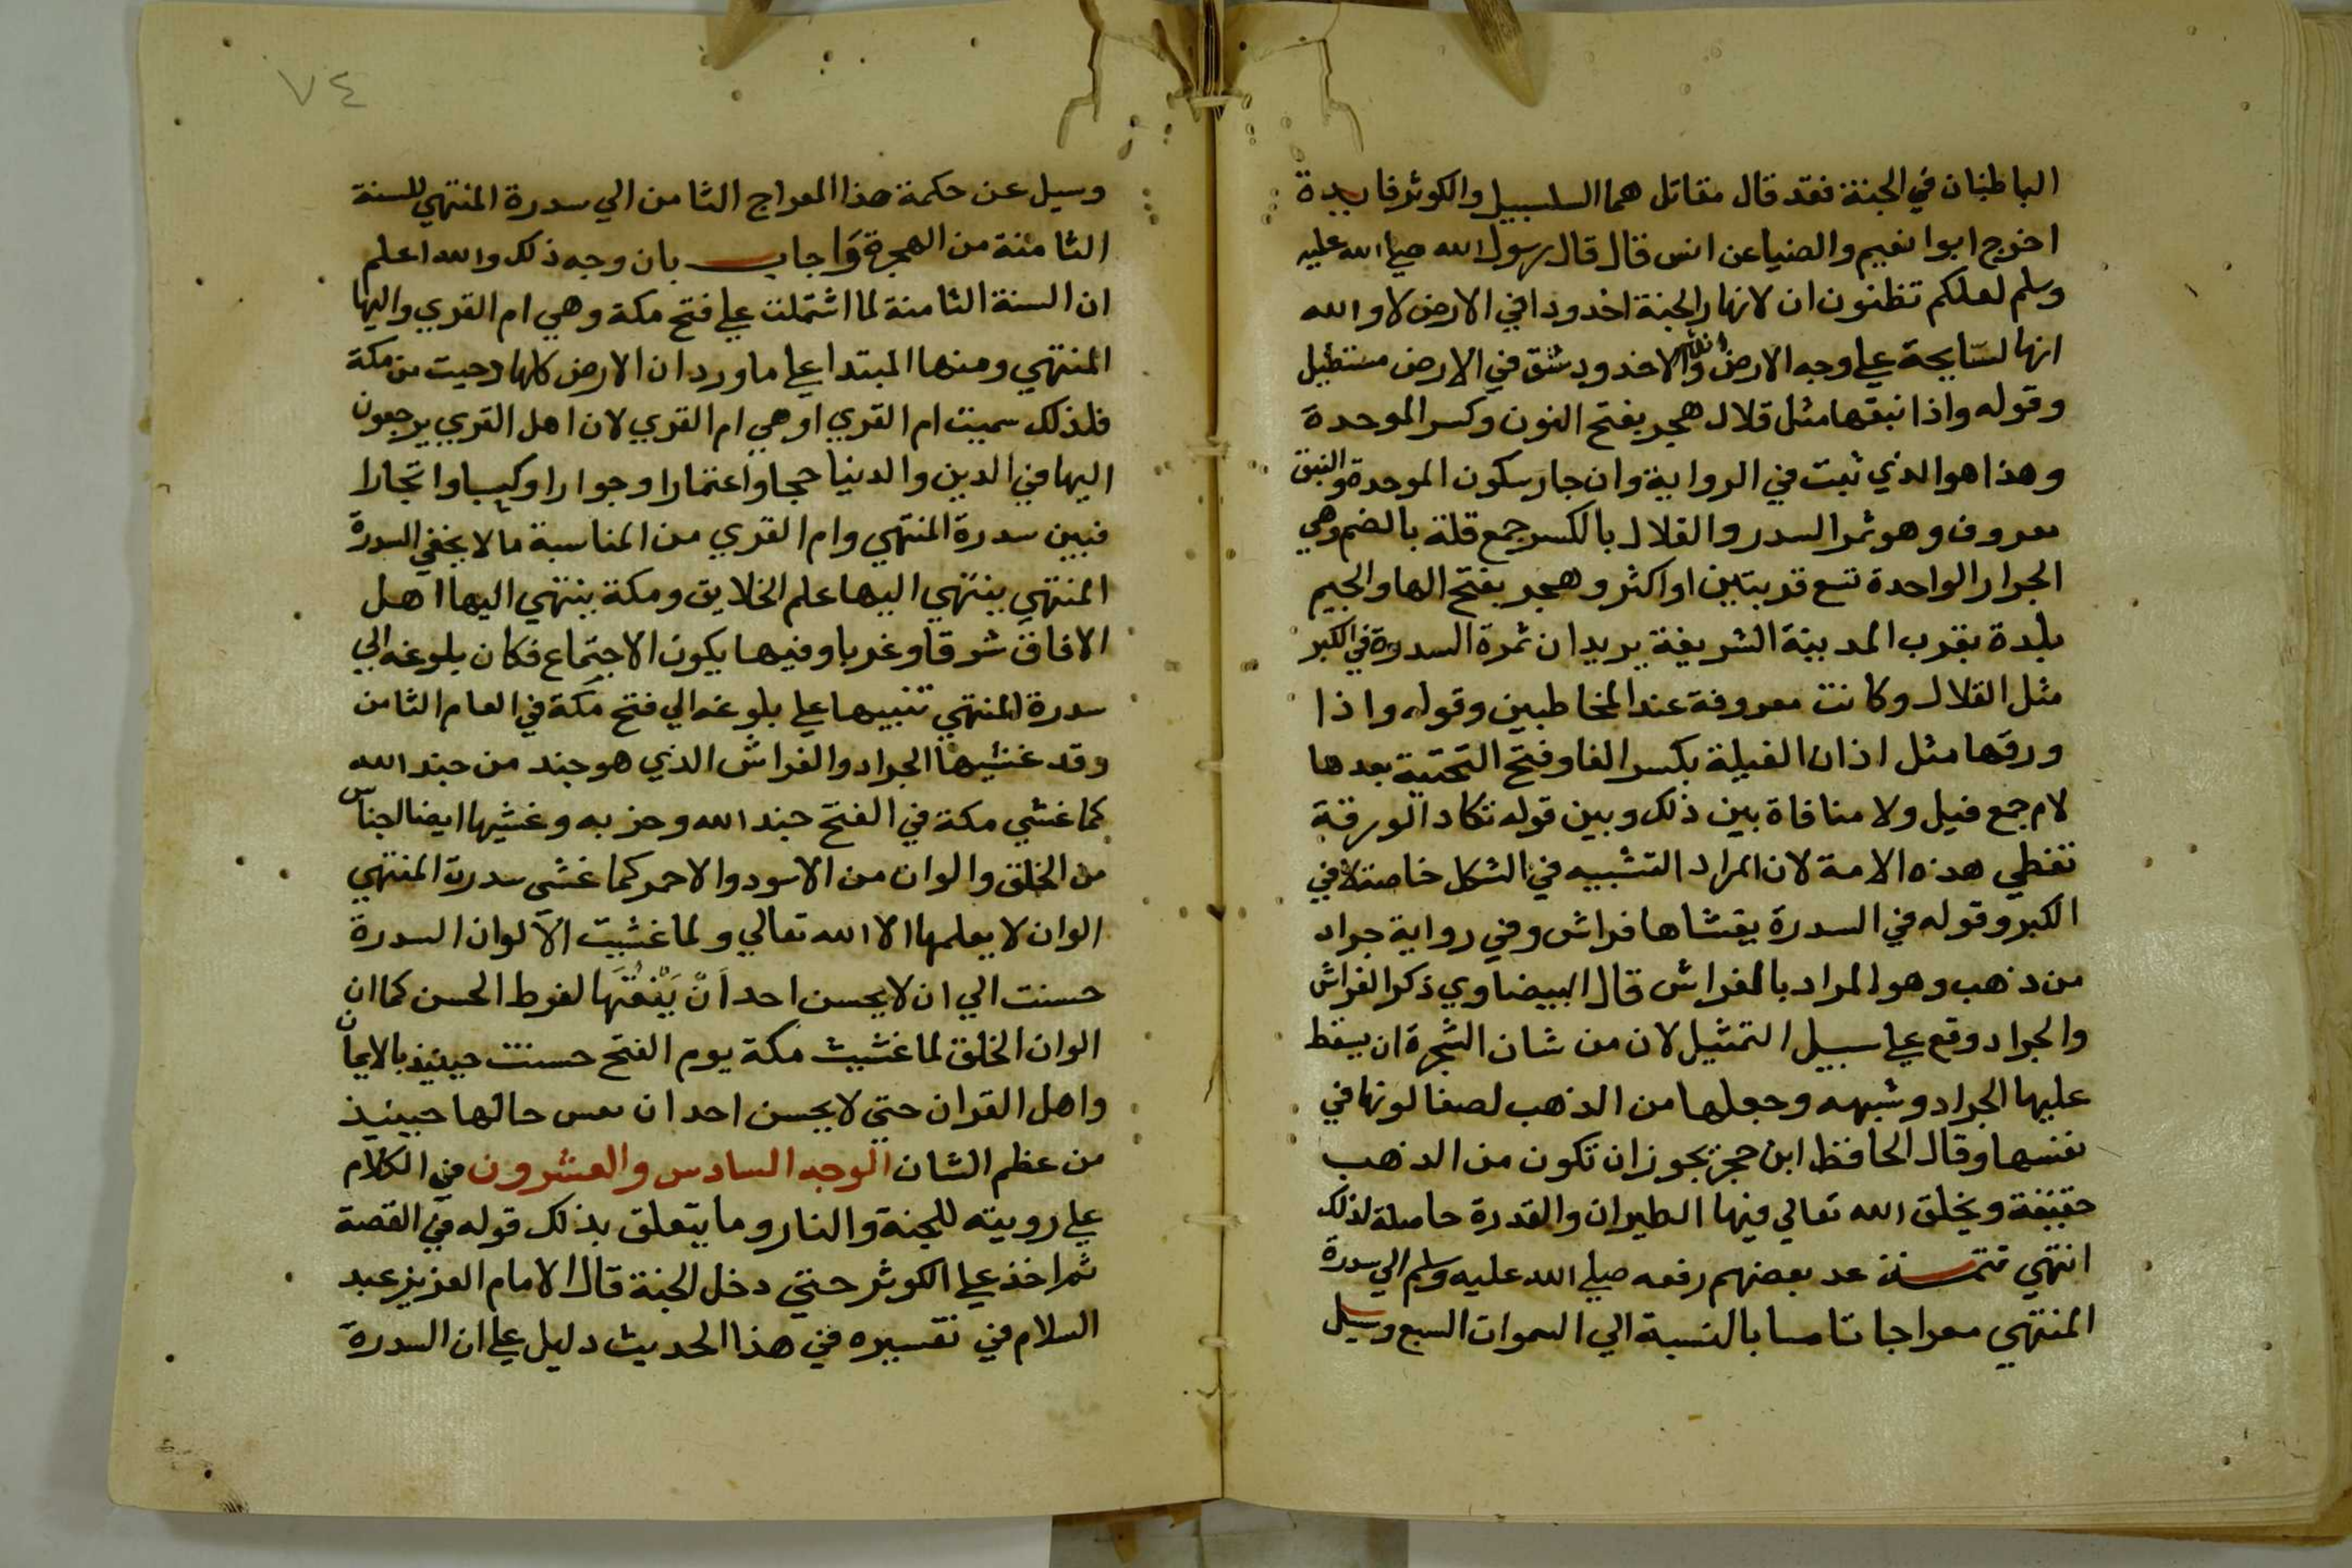 الباطنان في الجنة فقد قال مقاتل هما السلسبيل والكوثر فايدة
اخرج ابوا نعيم والضيا عن انس قال قال رسول الله صلي الله عليه
وسلم لعلكم تظنون ان لانهار الجنة اخدودا في الارض لا والله
انها لسايحة علي وجه الارض والاخدود شق في الارض مستطيل
وقوله واذا نبقها مثل قلال هجر بفتح النون وكسر الموحدة
وهذا هو الذي ثبت في الرواية وان جاز سكون الموحدة والنبق
معروف وهو ثمر السدر والقلال بالكسر جمع قلة بالضم وهي
الجرار الواحدة تسع قربتين او اكثر وهجر بفتح الها والجيم
بلدة بقرب المدينة الشريفة يريد ان ثمرة السدرة في الكبر
مثل القلال وكانت معروفة عند المخاطبين وقوله واذا
ورقها مثل اذان الفيلة بكسر الفا وفتح التحتية بعدها
لام جمع فيل ولا منافاة بين ذلك وبين قوله تكاد الورقة
تغطي هذه الامة لان المراد التشبيه في الشكل خاصة لا في
الكبر وقوله في السدرة يغشاها فراش وفي رواية جراد
من ذهب وهو المراد بالفراش قال البيضاوي ذكر الفراش
والجراد وقع علي سبيل التمثيل لان من شان الشجرة ان يسقط
عليها الجراد وشبهه وجعلها من الذهب لصفا لونها في
نفسها وقال الحافظ ابن حجر يجوز ان تكون من الذهب
حقيقة ويخلق الله تعالي فيها الطيران والقدرة حاصلة لذلك
انتهي تتمـة عد بعضهم رفعه صلي الله عليه وسلم الي سدرة
المنتهي معراجا ثامنا بالنسبة الي السموات السبع وسيل
٧٤
وسيل عن حكمة هذا المعراج الثامن الي سدرة المنتهي للسنة
الثامنة من الهجرة وَاجاب بان وجه ذلك والله اعلم
ان السنة الثامنة لما اشتملت علي فتح مكة وهي ام القري واليها
المنتهي ومنها المبتدا علي ما ورد ان الارض كلها دحيت من مكة
فلذلك سميت ام القري او هي ام القري لان اهل القري يرجعون
اليها في الدين والدنيا حجا واعتمارا وجوارا وكسبا واتجارا
فبين سدرة المنتهي وام القري من المناسبة ما لا يخفي السدرة
المنتهي ينتهي اليها علم الخلايق ومكة ينتهي اليها اهل
الافاق شرقا وغربا وفيها يكون الاجتماع فكان بلوغه الي
سدرة المنتهي تنبيها علي بلوغه الي فتح مكة في العام الثامن
وقد غشيها الجراد والفراش الذي هو جند من جند الله
كما غشي مكة في الفتح جند الله وحزبه وغشيها ايضا اجناس
من الخلق والوان من الاسود والاحمر كما غشى سدرة المنتهي
الوان لا يعلمها الا الله تعالي ولما غشيت الالوان السدرة
حسنت الي ان لا يحسن احد اَنْ يَنْعَتَهَا لفرط الحسن كما ان
الوان الخلق لما غشيت مكة يوم الفتح حسنت حينيذ بالايمان
واهل القران حتي لا يحسن احد ان حالها حينيذ
من عظم الشان الوجه السادس والعشرون في الكلام
علي رويته للجنة والنار وما يتعلق بذلك قوله في القصة
ثم اخذ علي الكوثر حتي دخل الجنة قال الامام العزيز عبد
السلام في تفسيره في هذا الحديث دليل علي ان السدرة